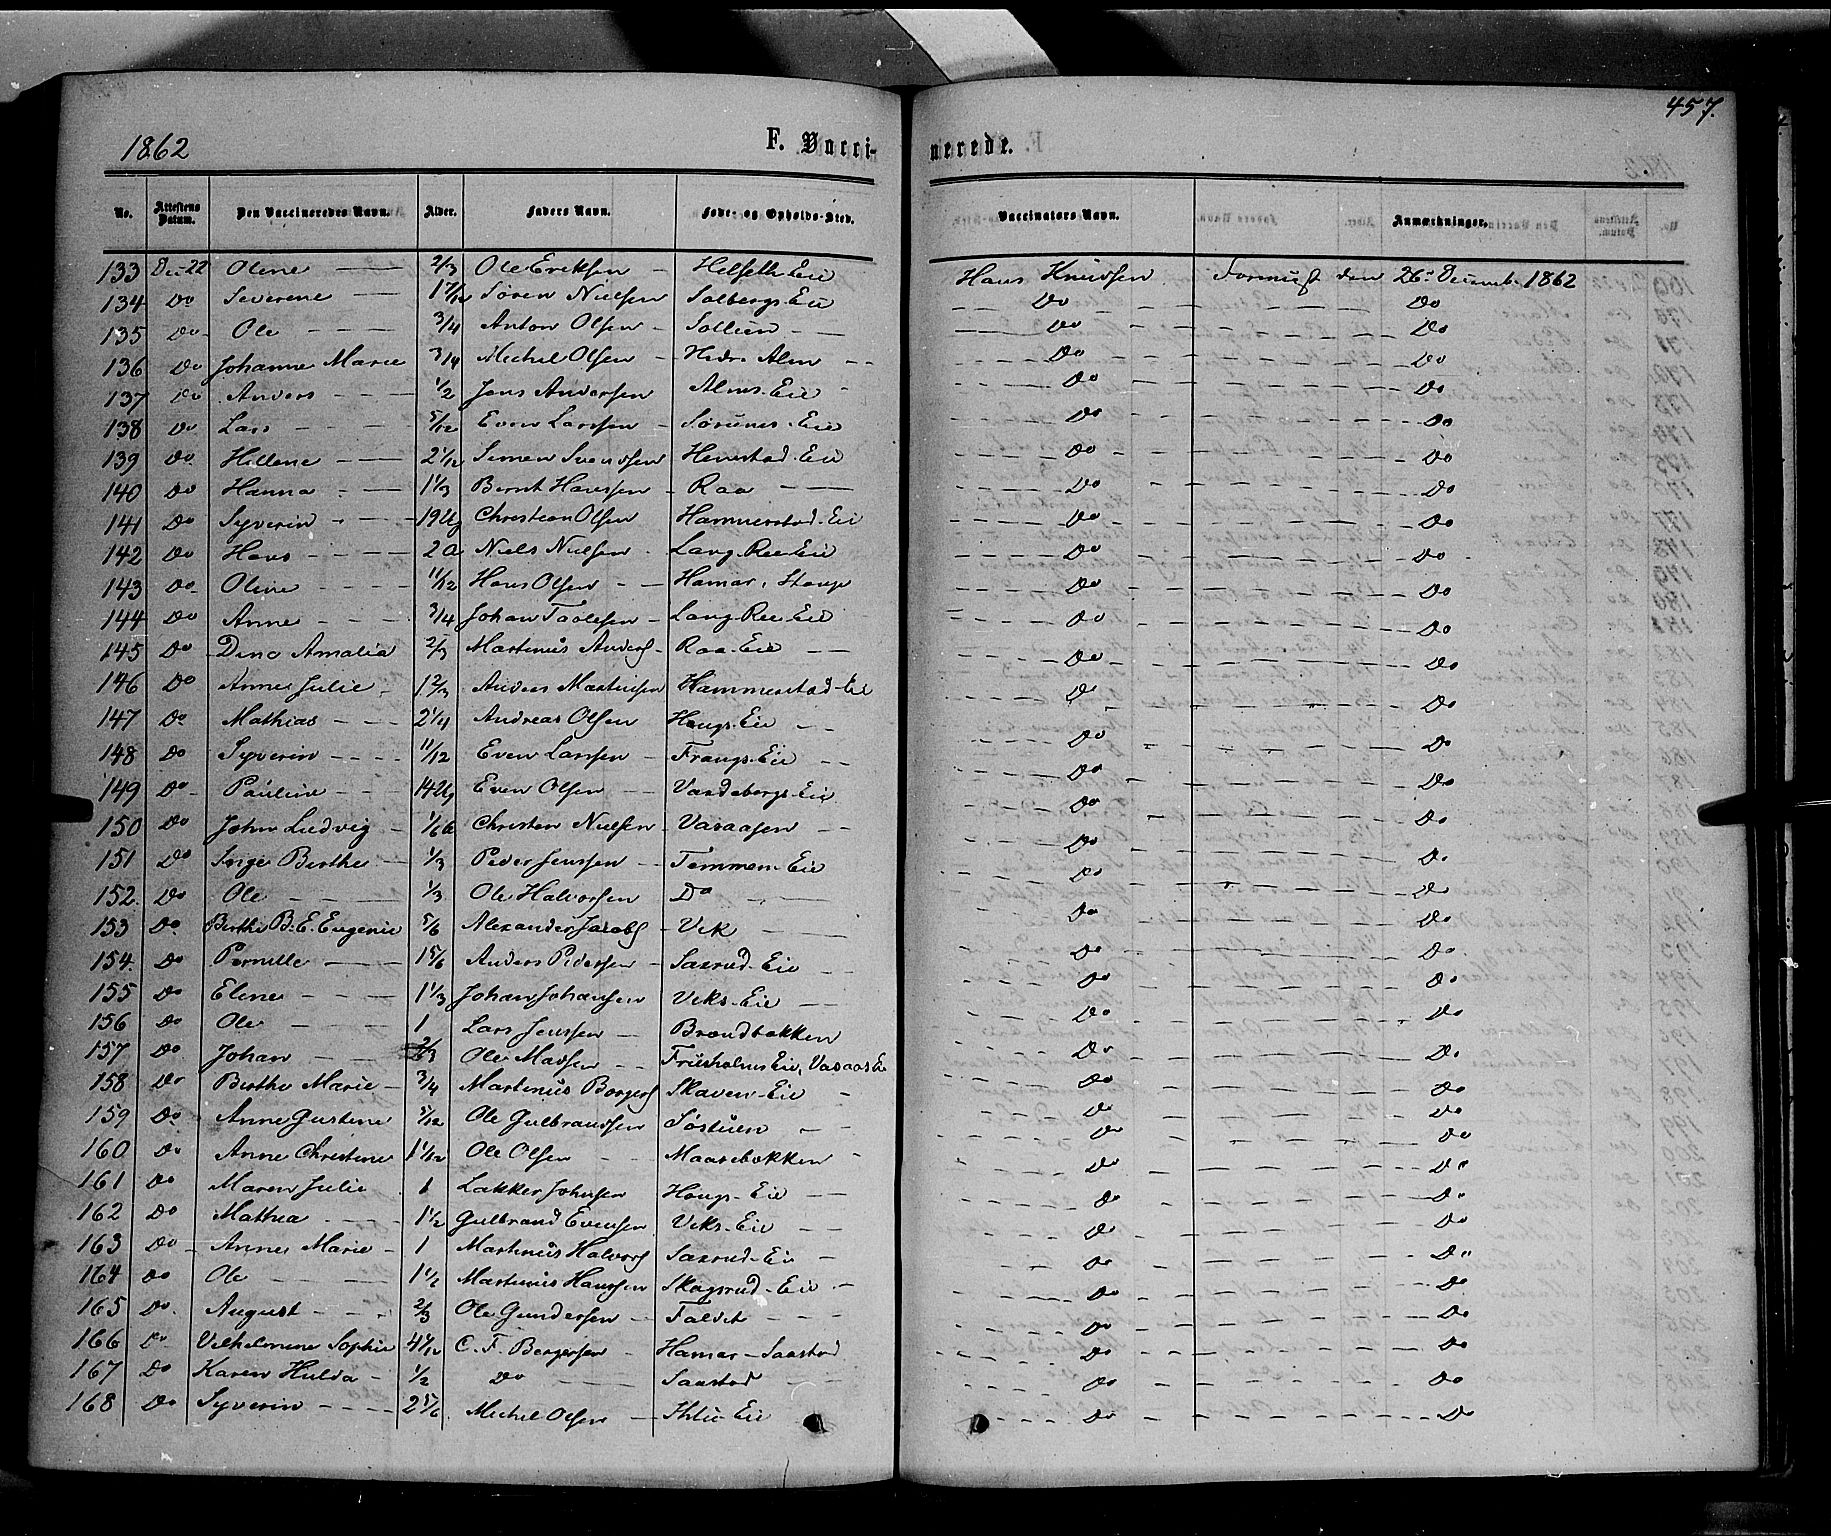 457.
1862 F. Vaccinerede.
No. Attestens Datum. Den Vaccineredes Navn. Alder. Faders Navn. Føde- og Opholds-Sted. Vaccinators Navn. Anmærkninger.
133 Dec 22 Oline 2/3 Ole Eriksen Helseth Eie Hans Knudsen den 26d Decemb. 1862
134 Do Severene 1 7/12 Søren Nielsen Solbergs Eie Do Do
135 Do Ole 3/4 Anton Olsen Sollien Do Do
136 Do Johanne Marie 3/4 Michel Olsen Alm Do Do
137 Do Anders 1/2 Jens Andersen Alms-Eie Do Do
138 Do Lars 5/12 Even Larsen Eie Do Do
139 Do Hellene 2 1/12 Simen Svendsen Eie Do Do
140 Do Hanna 1 1/3 Bernt Hansen Raa Do Do
141 Do Syverin 19 Ug Christian Olsen Hammerstad-Eie Do Do
142 Do Hans 2 a Niels Nielsen Lang-Ree Eie Do Do
143 Do Oline 11/12 Hans Olsen Hamar, Stange Do Do
144 Do Anne 3/4 Johan Taalesen Lang-Ree Eie Do Do
145 Do Dina Amalia 2/3 Martinus Anders Raa-Eie Do Do
146 Do Anne Julie 1 2/3 Anders Martinsen Hammerstad-Eie Do Do
147 Do Mathias 2 1/4 Andreas Olsen Hougs-Eie Do Do
148 Do Syverin 11/12 Even Larsen Frangs-Eie Do Do
149 Do Pauline 14 Ug Even Olsen Vardebergs-Eie Do Do
150 Do John Ludvig 1/6 Christen Nielsen Vasaasen Do Do
151 Do Inger Berthe 1/3 Peder Jensen Tommen-Eie Do Do
152. Do Ole 1/3 Ole Halvorsen Do Do Do
153 Do Berthe B. E. Eugenie 5/6 Alexander Jacobs Vik Do Do
154. Do Pernille 1 5/6 Anders Pedersen Saxrud-Eie Do Do
155 Do Eline 1 1/3 Johan Johansen Veks-Eie Do Do
156 Do Ole 1 Lars Jensen Brændbakken Do Do
157 Do Johan 2/3 Ole Madsen Frisholms Eie, Vasaas Eie Do Do
158 Do Berthe Marie 3/4 Martinus Borgers Skaven-Eie Do Do
159 Do Anne Gustine 5/12 Ole Gulbrandsen Søstuen Do Do
160 Do Anne Christine 1 1/12 Ole Olsen Maasebakken Do Do
161 Do Maren Julie 1 Lakker Johnsen Hougs-Eie Do Do
162 Do Mathea 1 1/2 Gulbrand Evensen Veks-Eie Do Do
163 Do Anne Marie 1 Martinus Halvors Saxrud-Eie Do Do
164 Do Ole 1 1/2 Martinus Hansen Skogsrud-Eie Do Do
165 Do August 2/3 Ole Gundersen Faldet Do Do
166 Do Vilhelmine Sophie C. F. Bergersen Hamar-Saastad Do Do
167 Do Karen Hulda 1/2 Do Saastad Do Do
168 Do Syverin 2 5/6 Michel Olsen Eie Do Do